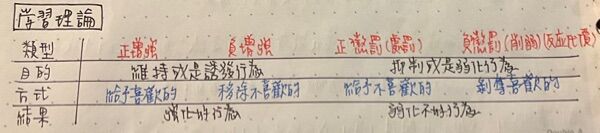 學習理論
類型 正增強 負增強 正懲罰(處罰) 負懲罰(削弱)(反应代價)
目的 維持或是誘發行為 抑制或是弱化行為
方式 給予喜歡的 移除不喜歡的 給予不喜歡的 剝奪喜歡的
結果 強化的行為 弱化不的行為